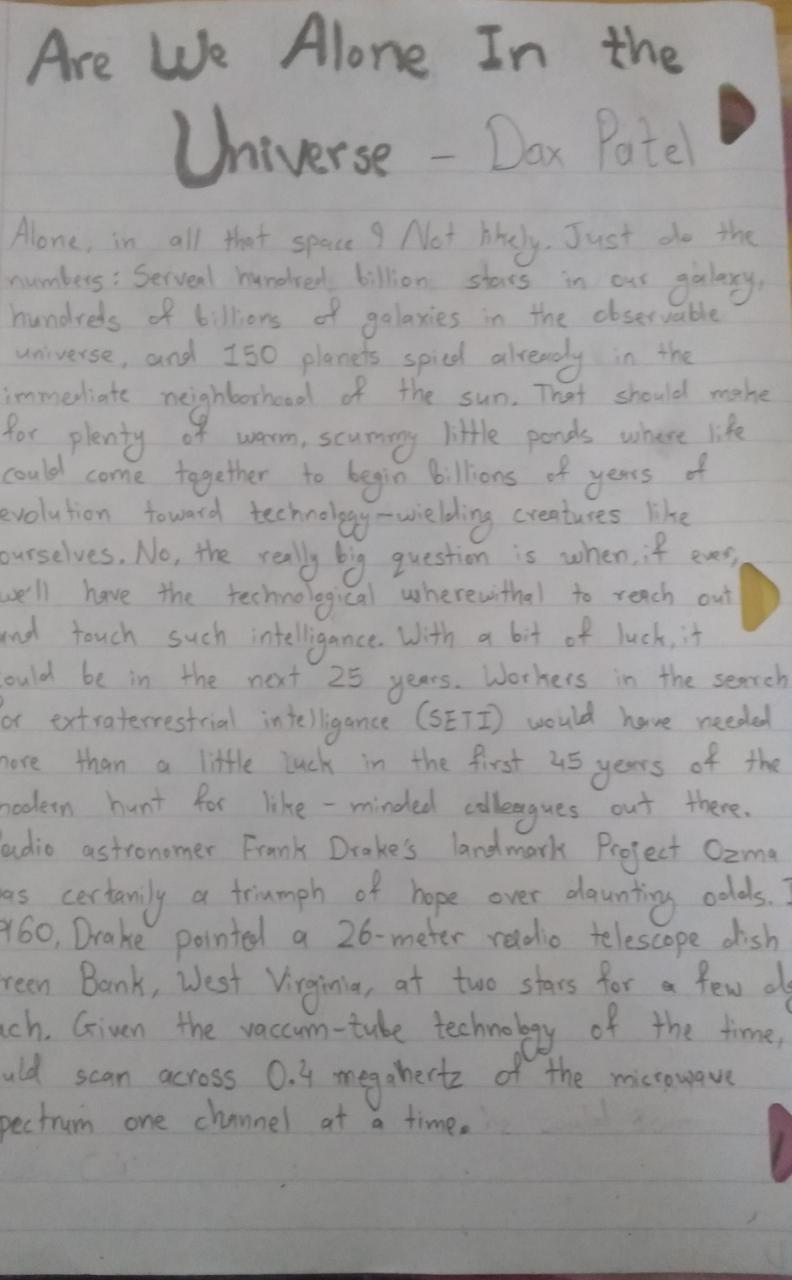 Are We Alone In the
Universe - Dax Patel
Alone, in all that space? Not likely. Just do the
numbers: Serveal hundred billion stars in our galaxy,
hundreds of billions of galaxies in the observable
universe, and 150 planets spied already in the
immediate neighborhood of the sun. That should make
for plenty of warm, scummy little ponds where life
could come together to begin billions of years of
evolution toward technology-wielding creatures like
ourselves. No, the really big question is when, if ever,
we'll have the technological wherewithal to reach out
and touch such intelligance. With a bit of luck, it
ould be in the next 25 years. Workers in the search
or extraterrestrial intelligance (SETI) would have needed
ore than a little luck in the first 45 years of the
odern hunt for like-minded colleagues out there.
adio astronomer Frank Drake's landmark Project Ozma
as certanily a triumph of hope over daunting odds. I
960, Drake pointed a 26-meter radio telescope dish
reen Bank, West Virginia, at two stars for a few da
ach. Given the vaccum-tube technology of the time,
uld scan across 0.4 megahertz of the microwave
pectrum one channel at a time.